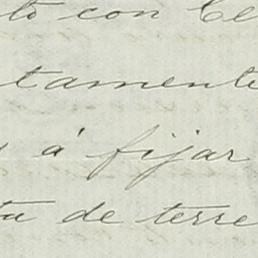 to con Ce
tamente
á fijar
ta de terre